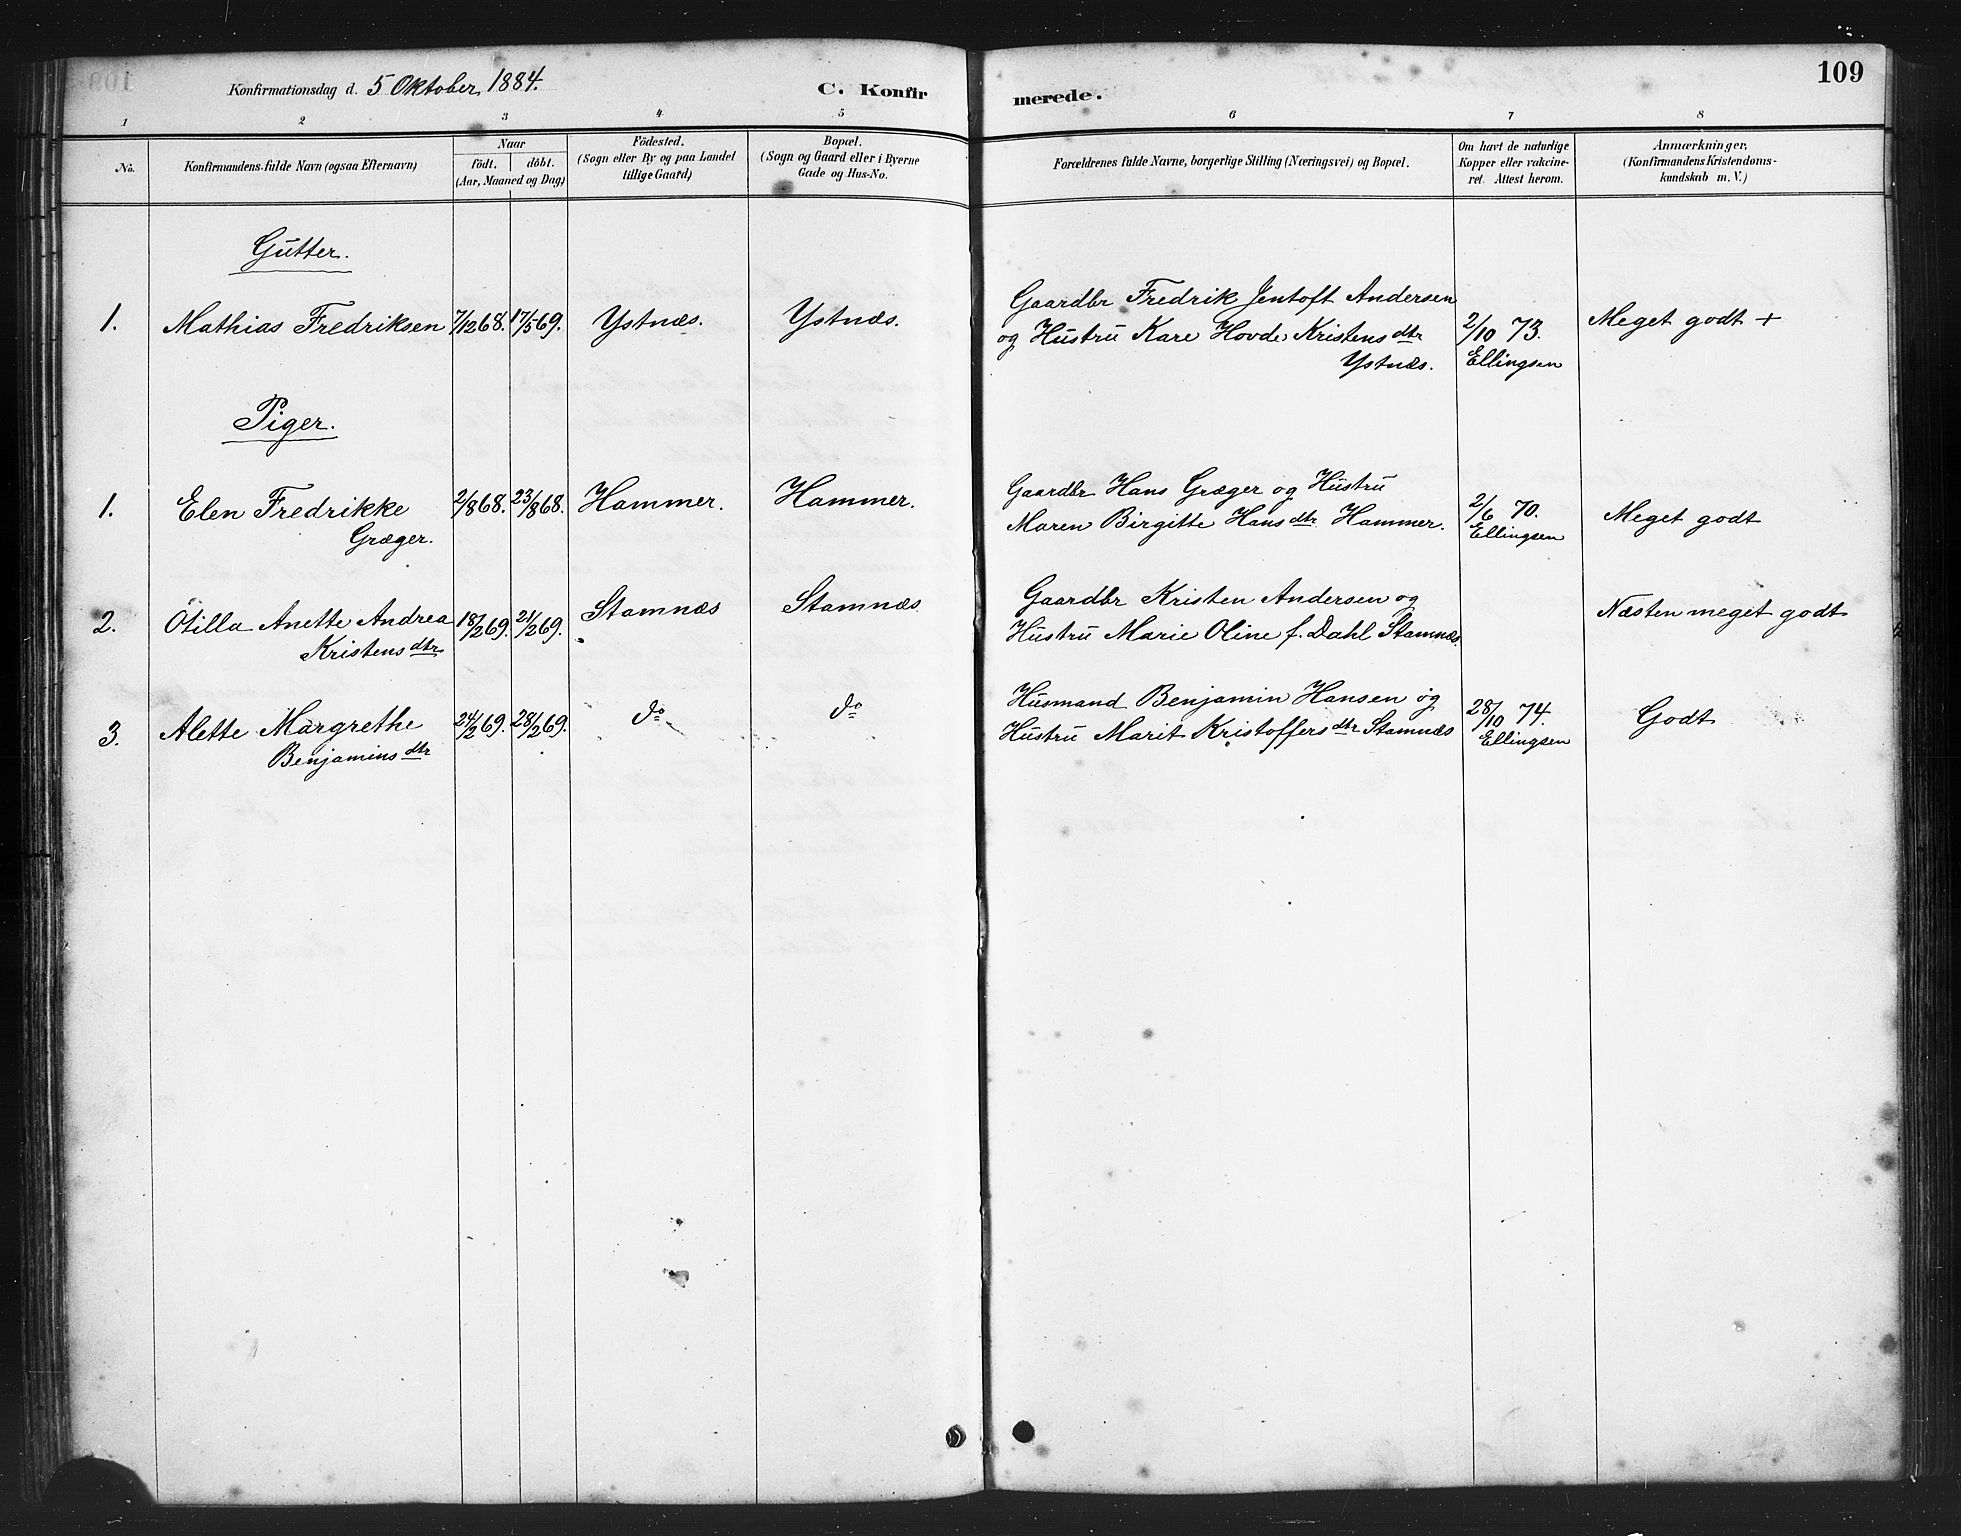 Konfirmationsdag d. 5 Oktober 1884.
C. Konfirmerede.
109
1 2 3 4 5 6 7 8
No.
Konfirmandens fulde Navn (ogsaa Efternavn)
Naar
födt. döbt.
(Aar, Maaned og Dag)
Födested.
(Sogn eller By og paa Landet
tillige Gaard)
Bopæl.
(Sogn og Gaard eller i Byerne
Gade og Hus-No.
Forældrenes fulde Navne, borgerlige Stilling (Næringsvei) og Bopæl.
Om havt de naturlige
Kopper eller vakcine-
ret. Attest herom.
Anmærkninger.
(Konfirmandens Kristendoms-
kundskab m. V.)
Gutter.
1. Mathias Fredriksen 7/12 68. 17/5 69. Ystnæs. Ystnæs. Gaardbr Fredrik Jentoft Andersen
og Hustru Kare Hovde Kristensdtr
Ystnæs.
2/10 73.
Ellingsen
Meget godt +
Piger.
1. Elen Fredrikke
Græger.
2/8 68. 23/8 68. Hammer. Hammer. Gaardbr Hans Græger og Hustru
Maren Birgitte Hansdtr Hammer.
2/6 70.
Ellingsen
Meget godt
2. Otilla Anette Andrea
Kristensdtr
18/2 69. 21/2 69. Stamnæs Stamnæs Gaardbr Kristen Andersen og
Hustru Marie Oline f. Dahl Stamnæs.
Næsten meget godt
3. Alette Margrethe
Benjaminsdtr
24/2 69. 28/2 69. do do Husmand Benjamin Hansen og
Hustru Marit Kristoffersdtr Stamnæs
28/10 74.
Ellingsen
Godt